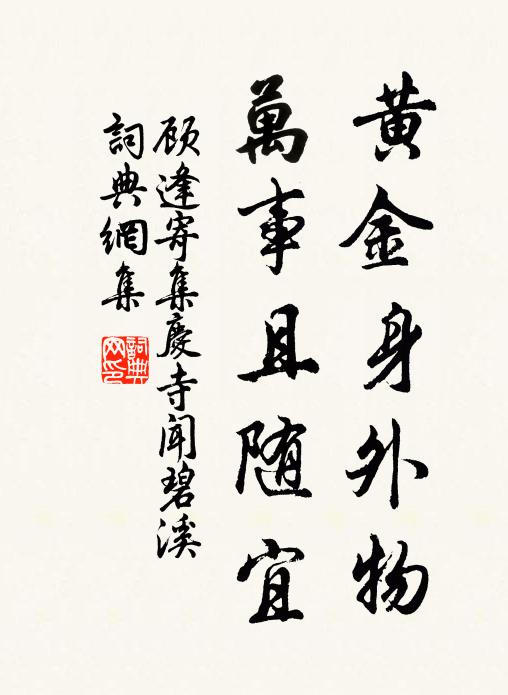 黄金身外物
萬事且随宜
顾逢寄集慶寺聞碧溪
詞典網集
詞典網印